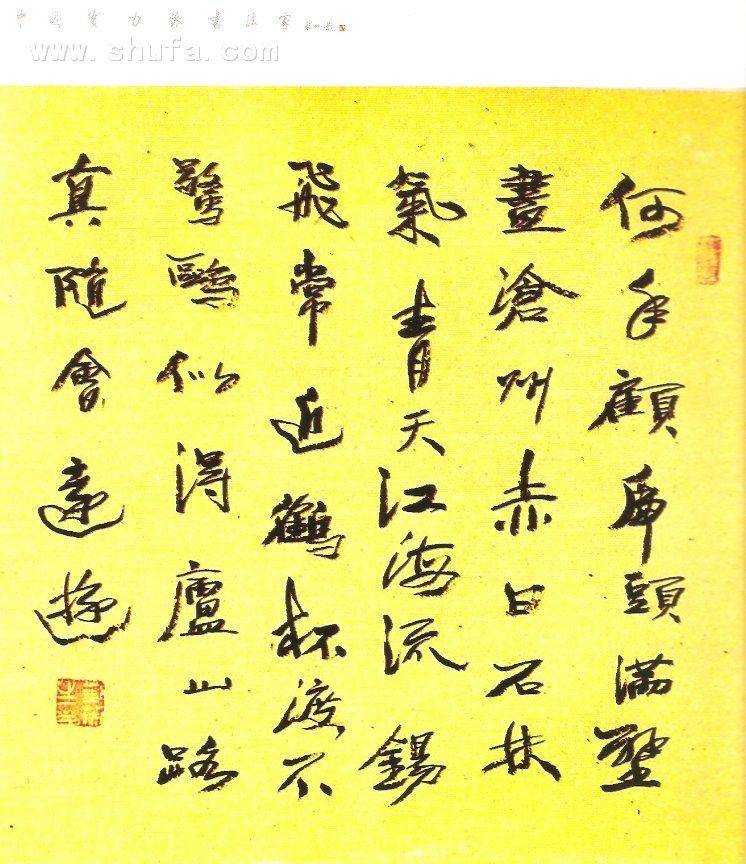 中國實力派書法家
www.shufa.com
何年顧虎頭滿壁
畫滄州赤日石林
氣青天江海流錫
飛常近鶴杯渡不
驚鷗似得廬山路
真隨會遠遊